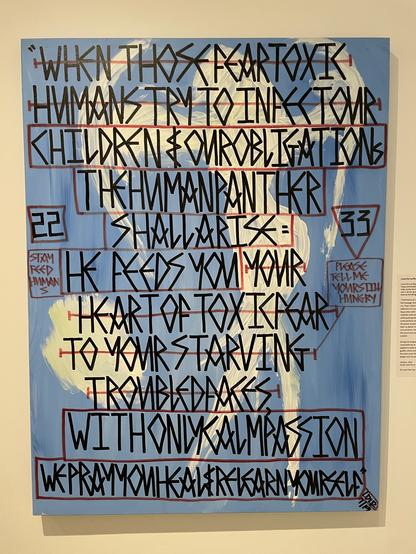 "WHEN THOSE FEARTOXIC
HUMANS TRY TO INFECT OUR
CHILDREN & OUR OBLIGATIONS
THEHUMANPANTHER
22
SHALL ARISE:
33
STAY FEED HUMANS
HE FEEDS YOU YOUR
PLEASE
TELL ME
YOURSTILL
HUNGRY
HEART OF TOXIC FEAR
TO YOUR STARVING
TROUBLED FACES,
WITH ONLY CALM PASSION
WE PRAY YOU HEAL & RELEARN YOURSELF"